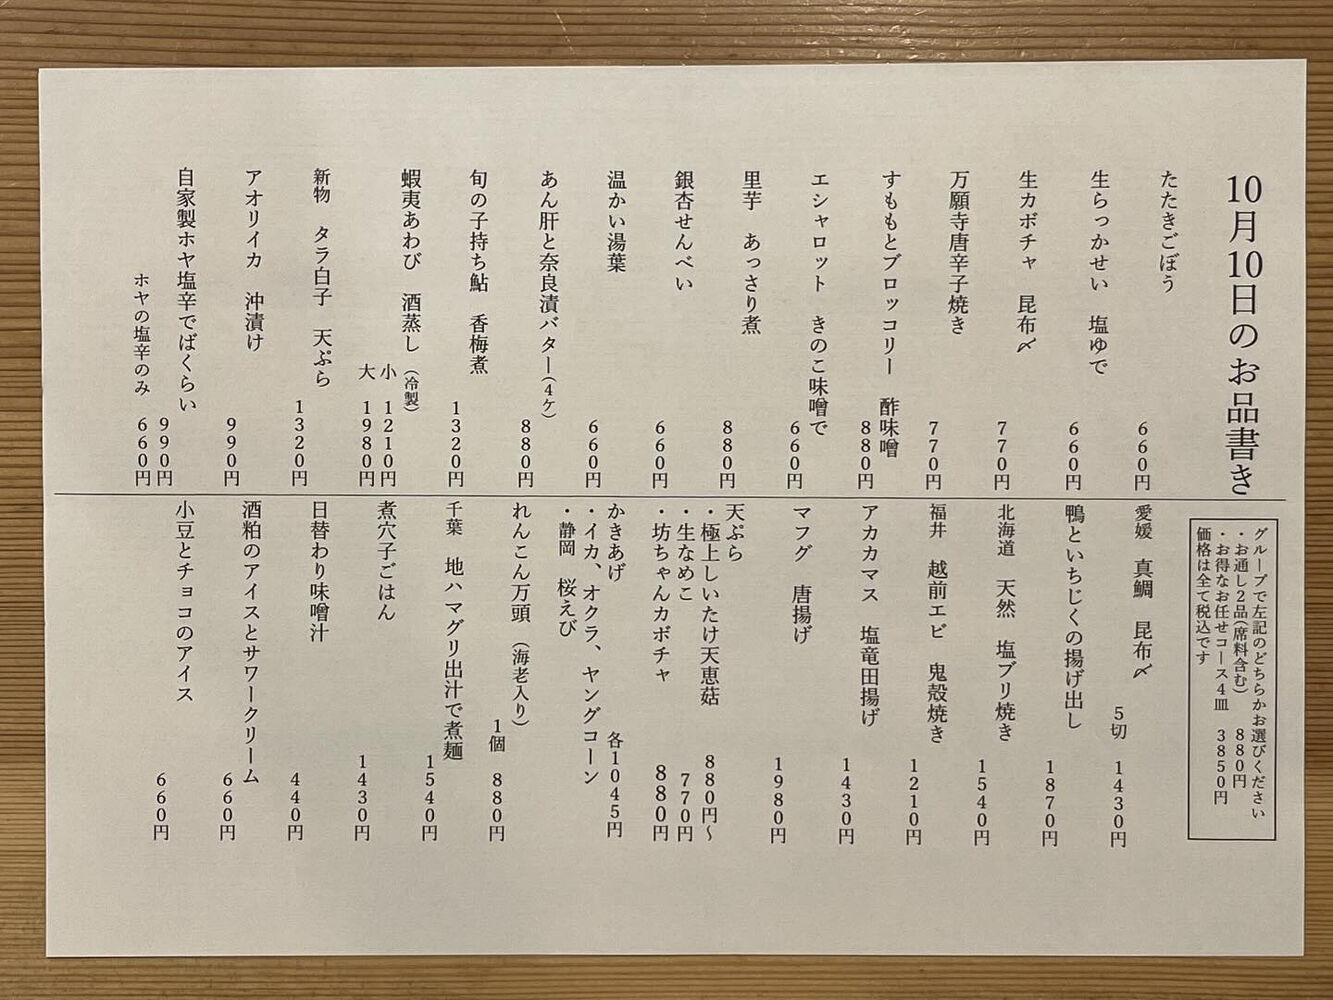 10月10日のお品書き
たたきごぼう 660円
生らっかせい 塩ゆで 660円
生カボチャ 昆布〆 770円
万願寺唐辛子焼き 770円
すももとブロッコリー 酢味噌 880円
エシャロット きのこ味噌で 660円
里芋 あっさり煮 880円
銀杏せんべい 660円
温かい湯葉 660円
あん肝と奈良漬バター(4ケ) 880円
旬の子持ち鮎 香梅煮 1320円
蝦夷あわび 酒蒸し (冷製)
小 1210円
大 1980円
新物 タラ白子 天ぷら 1320円
アオリイカ 沖漬け 990円
自家製ホヤ塩辛でばくらい 990円
ホヤの塩辛のみ 660円
グループで左記のどちらかお選びください
・お通し2品(席料含む) 880円
・お得なお任せコース4皿 3850円
価格は全て税込です
愛媛 真鯛 昆布〆 5切 1430円
鴨といちじくの揚げ出し 1870円
北海道 天然 塩ブリ焼き 1540円
福井 越前エビ 鬼殻焼き 1210円
アカカマス 塩竜田揚げ 1430円
マフグ 唐揚げ 1980円
天ぷら
・極上しいたけ天恵菇 880円〜
・生なめこ 770円
・坊ちゃんカボチャ 880円
かきあげ 各1045円
・イカ、オクラ、ヤングコーン
・静岡 桜えび
れんこん万頭 (海老入り) 1個 880円
千葉 地ハマグリ出汁で煮麺 1540円
煮穴子ごはん 1430円
日替わり味噌汁 440円
酒粕のアイスとサワークリーム 660円
小豆とチョコのアイス 660円